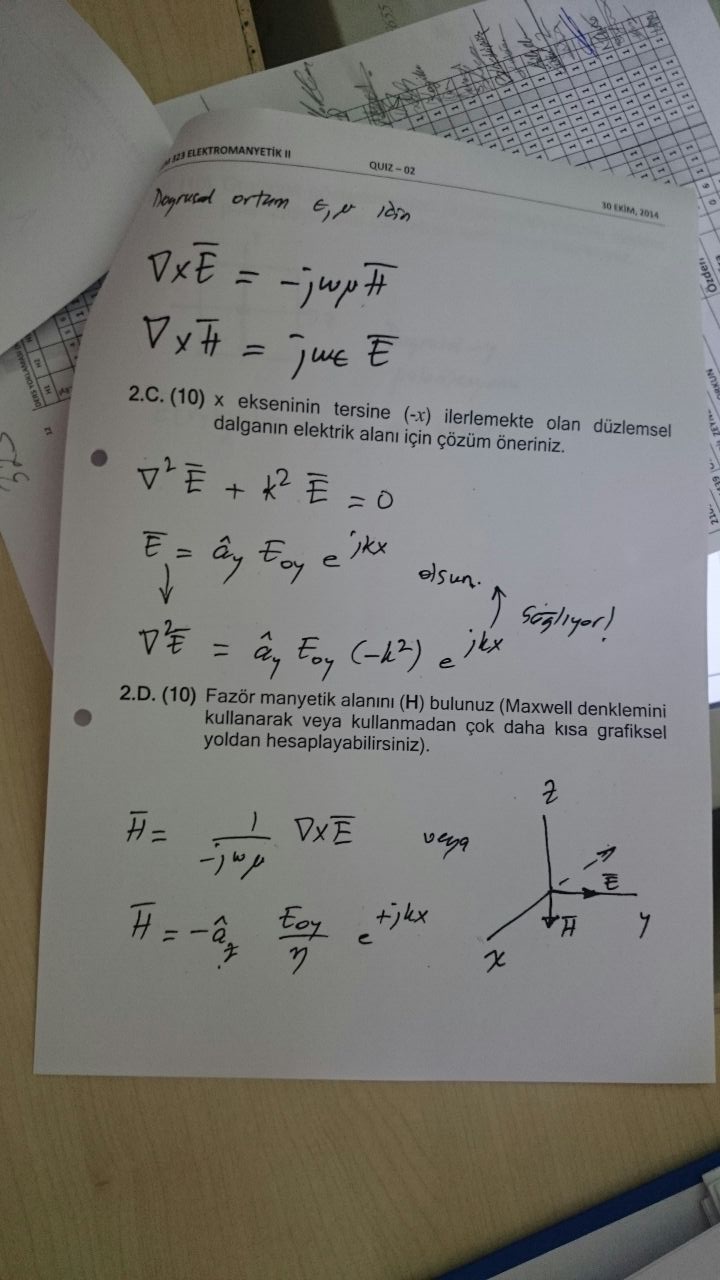 323 ELEKTROMANYETİK II
QUIZ – 02
30 EKİM, 2014
Doğrusal ortam ϵ, μ için
∇×E̅ = -jωμH̅
∇×H̅ = jωϵ E̅
2.C. (10) x ekseninin tersine (-x) ilerlemekte olan düzlemsel
dalganın elektrik alanı için çözüm öneriniz.
∇² E̅ + k² E̅ = 0
E̅ = â_y E_oy e^jkx olsun.
↓ ↑ Sağlıyor!
∇²E̅ = â_y E_oy (-k²) e^jkx
2.D. (10) Fazör manyetik alanını (H) bulunuz (Maxwell denklemini
kullanarak veya kullanmadan çok daha kısa grafiksel
yoldan hesaplayabilirsiniz).
H̅ = 1/(-jωμ) ∇×E̅ veya
H̅ = -â_z E_oy/η e^+jkx
z
E̅
H̅
y
x